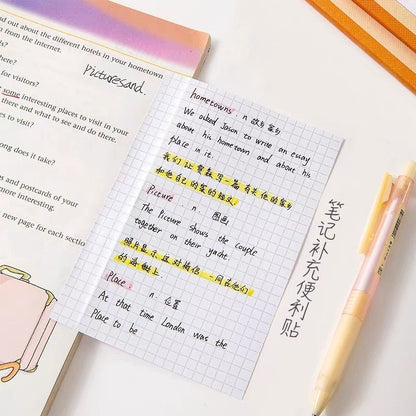 nd out about the different hotels in your hometown
n from the Internet.
Picturesand
here?
for visitors?
some interesting places to visit in your
there and what to see and do there.
es to visit?
ong does it take?
and postcards of your
more interesting.
new page for each sectio
hometowns : n 故乡 家乡
We asked Jason to write an essay
about his hometown and about his
place in it.
我们让 写一篇有关他的家乡
和他自己的家的短文
Picture n. 图画
The Picture shows the couple
together on their yacht
照片显示 这对 一同在他们
的游艇上
Place: n. 位置
At that time London was the
Place to be
笔记补充便利贴